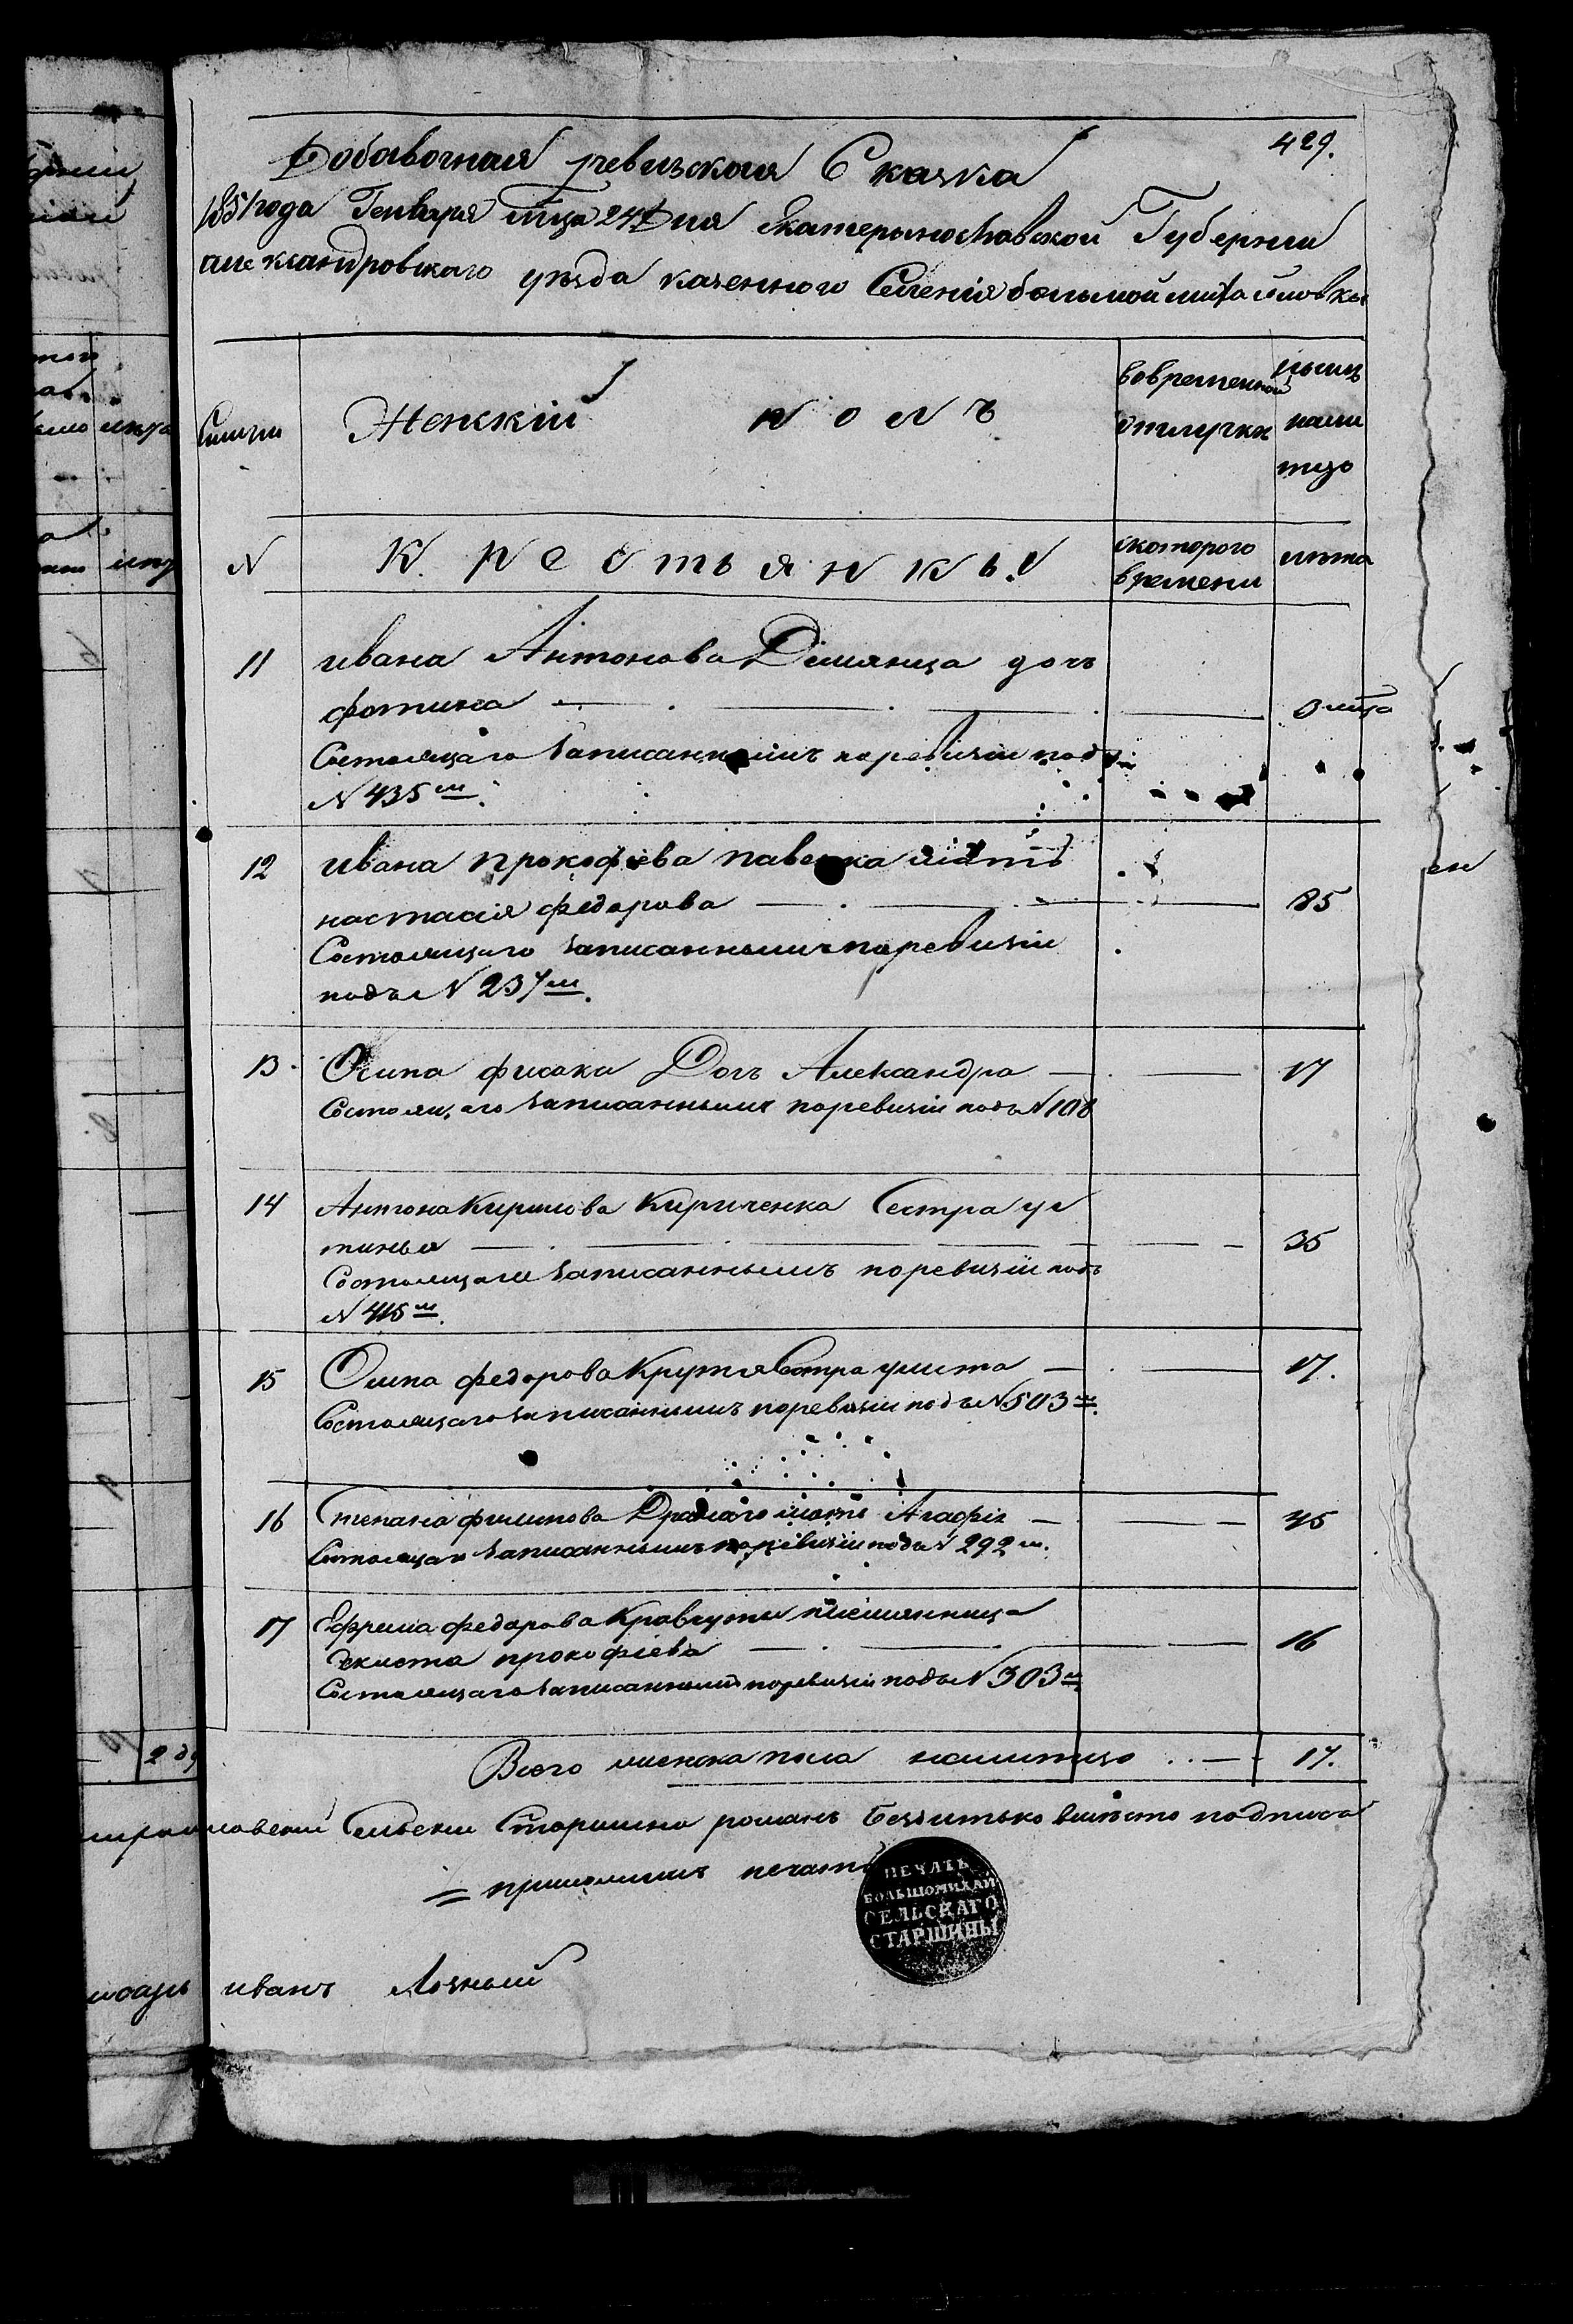 429.
Добавочная ревизская Сказка
1851 года Генваря мца 24 Дня Екатерынославской Губернии
александровского уезда казенного Селенія большой михайловки
Семьи
Женскій полъ
вовременной отлучки
нынѣ налицо
N
Крестьянкы
скоторого времени
лѣта
11 ивана Антонова дочъ
фотина 3 мца
Состоящаго записаннымъ поревизіи подъ
N 435м.
12 ивана прокофіева павенка мать
настасія федорова 85
Состоящаго записаннымъ поревизіи
подъ N 237м.
13 Осипа Дочъ Александра 17
Состоящаго записаннымъ поревизіи подъ N 108
14 Антона Кирилова Кириченка Сестра ус
тинья 35
Состоящаго записаннымъ поревизіи подъ
N 415м.
15 Осипа федорова Крутя Сестра улита 17.
Состоящаго записаннымъ поревизіи подъ N 503м.
16 Степана филипова мать Агафія 45
Состоящаго записаннымъ поревизіи подъ N 292м.
17 Ефрема федорова Кравчуты племянница
Феклиста прокофіева 16
Состоящаго записаннымъ поревизіи подъ N 303м.
Всего женска пола налицо 17.
Сельски Старшина романъ вмѣсто подписа
приложилъ печать
ПЕЧАТЬ
БОЛЬШОМИХАЙ
СЕЛЬСКАГО
СТАРШИНЫ
иванъ Лозный